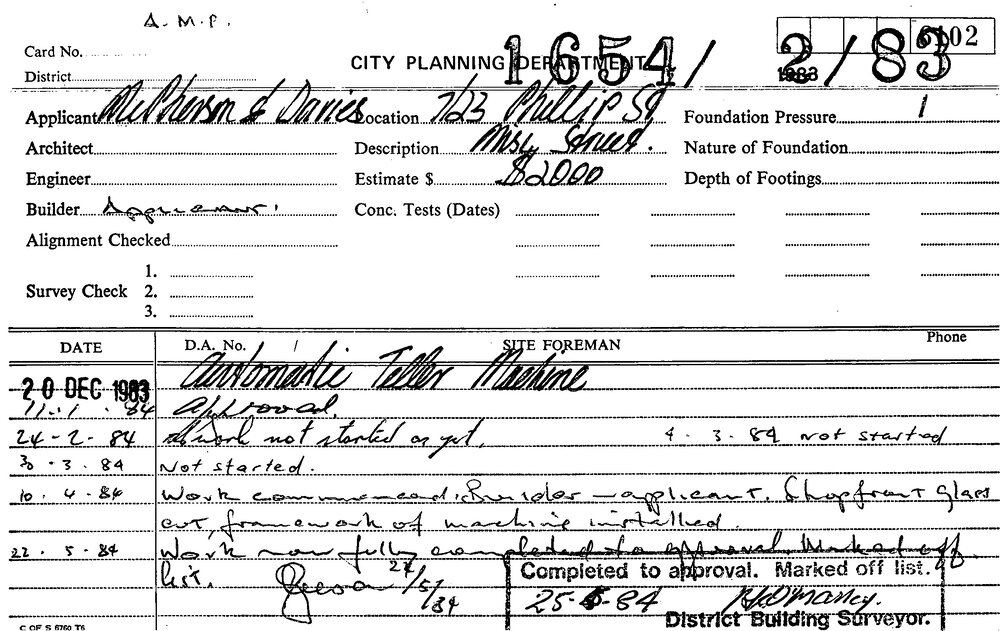 A.M.P.
Card No.
CITY PLANNING DEPARTMENT
1654/2/83
1983
6102
District
Applicant McPherson & Davies Location 7/23 Phillip St Foundation Pressure 1
Architect Description Misc Struct. Nature of Foundation
Engineer Estimate $ $2000 Depth of Footings
Builder Applicant. Conc. Tests (Dates)
Alignment Checked
1.
Survey Check 2.
3.
DATE D.A. No. / SITE FOREMAN Phone
Automatic Teller Machine
20 DEC 1983
11.1.84 Approved.
24-2-84 Work not started as yet. 4.3.84 Not started
30.3.84 Not started.
10.4.84 Work commenced. Builder - applicant. Shopfront glass
cut, framework of machine installed.
22.5.84 Work now fully completed to approval. Marked off
list. 22/5/84
Completed to approval. Marked off list.
25-5-84
District Building Surveyor.
C OF S 6760 T6